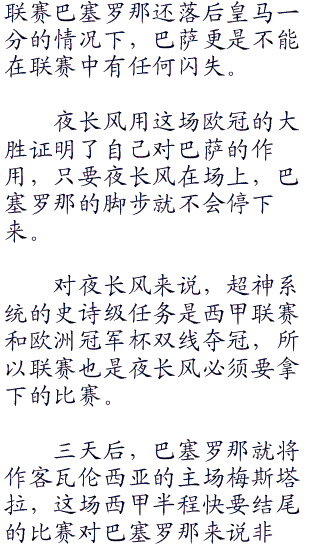 联赛巴塞罗那还落后皇马一
分的情况下，巴萨更是不能
在联赛中有任何闪失。
夜长风用这场欧冠的大
胜证明了自己对巴萨的作
用，只要夜长风在场上，巴
塞罗那的脚步就不会停下
来。
对夜长风来说，超神系
统的史诗级任务是西甲联赛
和欧洲冠军杯双线夺冠，所
以联赛也是夜长风必须要拿
下的比赛。
三天后，巴塞罗那就将
作客瓦伦西亚的主场梅斯塔
拉，这场西甲半程快要结尾
的比赛对巴塞罗那来说非